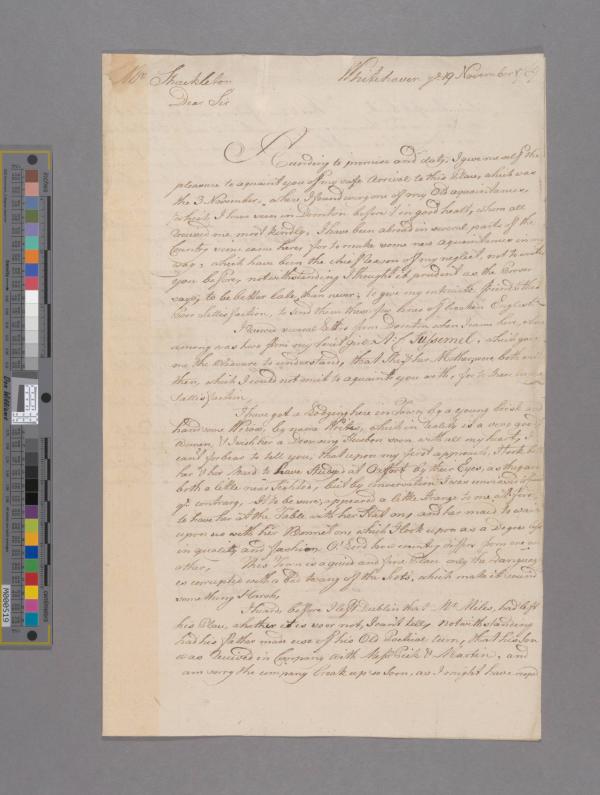 Mr Shackleton Whitehaven ye 19 November
Dear Sir
According to promise and duty, I give me self the
pleasure to aquaint you of my safe Arrival to this Place, which was
the 3 November, where I found every one of my Old aquaintances,
I have seen in before in good healt, whom all
received me most kindly, I have been abroad in several parts of the
Country since came here, for to make some new aquaintances in my
way, which have been the chief reason of my neglect, not to write
you before, notwithstanding I thought it prudent as the Prover
says, to be better late, than never, to give my intimate friends this
Poor Sattisfaction, to Send them these few lines of broken English
I received several Letters from when I came here,
among was two from my, which
me the Pleasure to understand, that She & her Mother, were both
then, which I could not omit to aquaint you with, for to
Sattisfaction.
I have got a Lodging here in Town by a young brisk and
handsome Widow, by name White, which in reality is a very
Women, & I wish her a Deserving Husband soon with all my heart, I
can't forbear to tell you, that upon my first approach, I took both
her & her Maid to have Studyed at Oxford by their Eyes, as they are
both a little near Sighted, but by conversation I was convinced of
ye contrary. It to be sure, appeared a little strange to me at first
to have her at the Table with her Hat on, and her maid to wait
upon us with her Bonnet on, which I look upon as a Degree less
in quality and fashion O! Lord how country differ from one an
other, This Town is a good and fine Place only the Language
is corrupted with a bad twang of the Scots, which make it sound
something Harsh,
I heard before I left Dublin that Mr. Miles, had left
his Place, whether it is so or not, I can't tell, notwithstanding
had his father made use of his Old Poetical turn, that his Son
was received in Company with Mess. Peile & Martin, and
am sorry the company break up so soon, as I might have
inches
centimeters
M000519